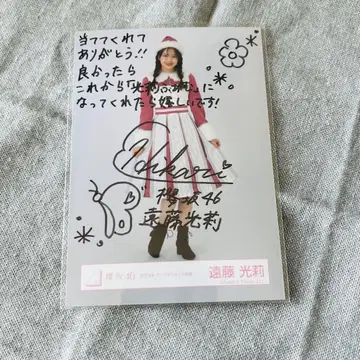 当ててくれて
ありがとう!!
良かったら
これから「光莉の」に
なってくれたら嬉しいです!
Hikari
櫻坂46
遠藤光莉
櫻坂46
遠藤 光莉